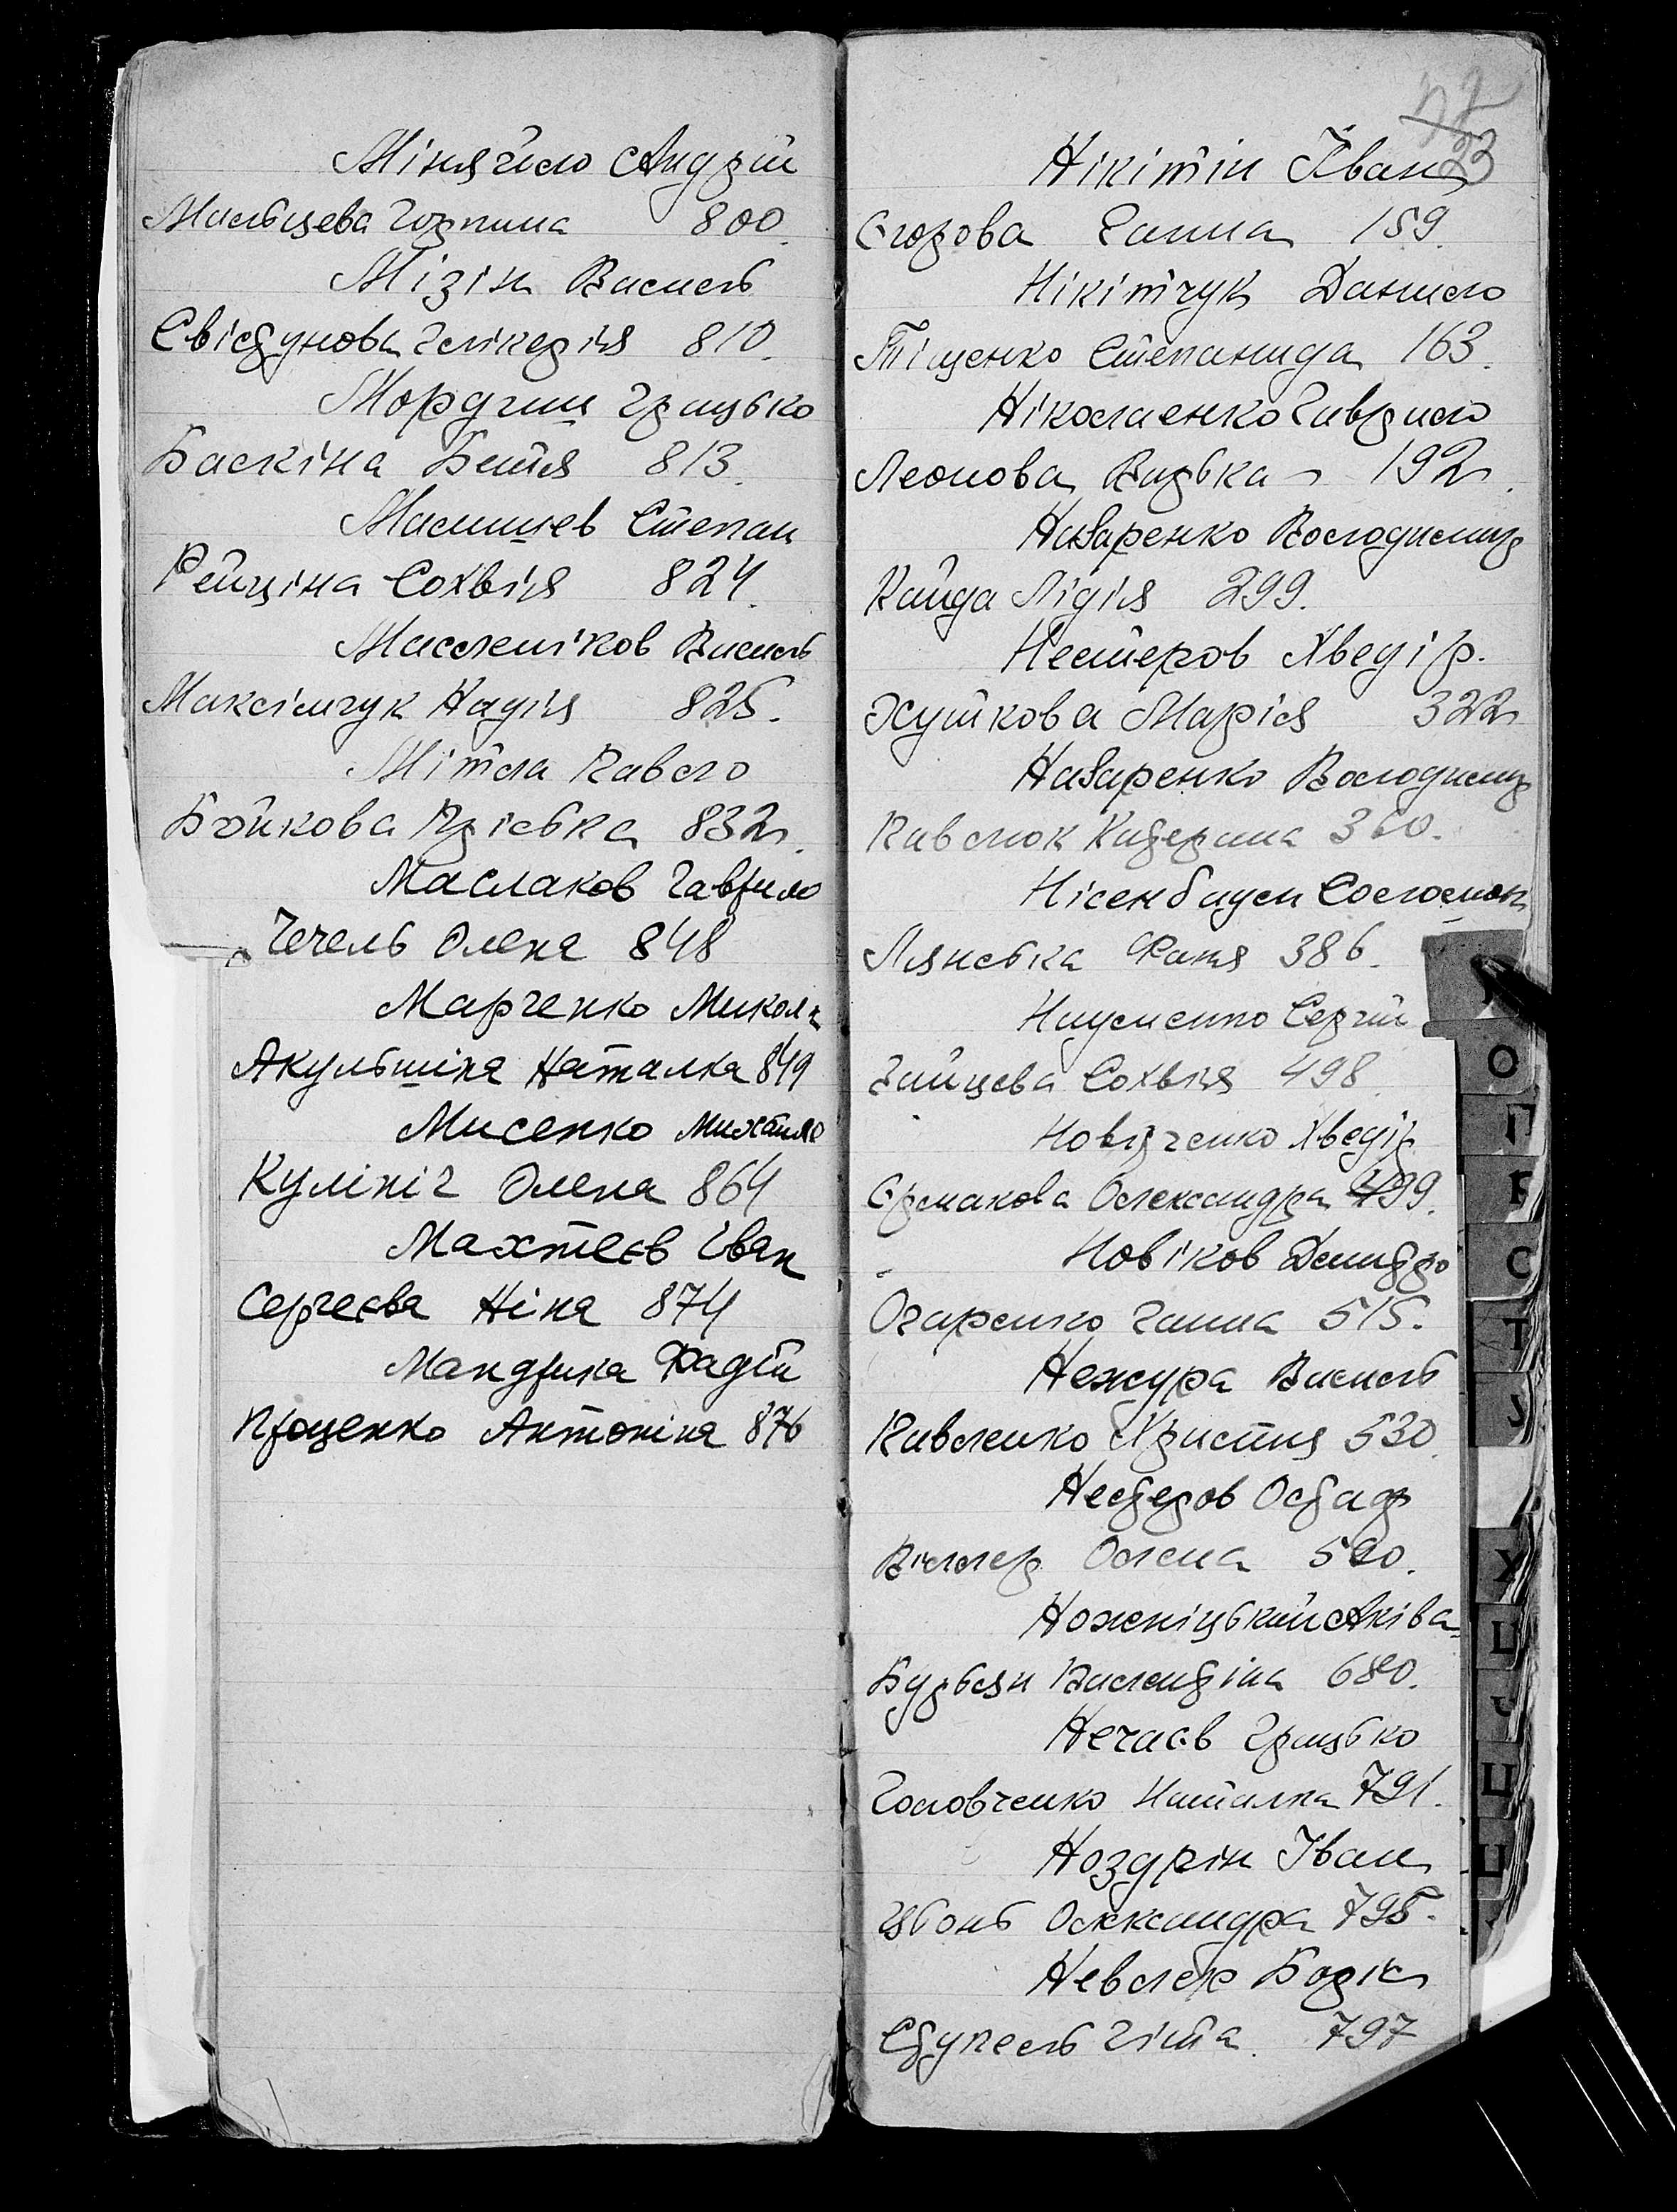 Міняйло Андрій
Мальцева Горпина 800.
Мізін Василь
Свістунова Глікерія 810.
Мордчиш Грицько
Баскіна Бетя 813.
Малишев Степан
Рейціна Сохвія 824.
Масленіков Василь
Максімчук Надія 825.
Мітла Павло
Бойкова Пріська 832.
Маслаков Гаврило
Чечель Олена 848
Марченко Микола
Акульшіна Наталка 849
Мисенко Михайло
Кулініч Олена 864
Махтеєв Іван
Сергеєва Ніна 874
Мандрика Фадій
Проценко Антоніна 876
23
Нікітін Іван
Єгорова Ганна 159.
Нікітчук Данило
Тіщенко Степанида 163.
Ніколаенко Гаврило
Леонова Варька 192.
Назаренко Володимир
Кайда Лідія 299.
Нестеров Хведір.
Жуйкова Марія 322
Назаренко Володимир
Павлюк Катерина 360.
Нісенбаум Соломон
Лянська Фаня 386.
Науменко Сергій
Зайцева Сохвія 498
Новіченко Хведір
Єрмакова Олександра 499.
Новіков Дмитро
Огаренко Ганна 515.
Нежура Василь
Павленко Христя 530.
Нестеров Остап
Віллер Олена 590.
Ножніцький Аківа
Бурьян Валентіна 680.
Нечаєв Грицько
Головченко Наталка 791.
Ноздрін Іван
Олександра 795.
Невлер Борис
Ступель Гіта. 797
О
П
Р
С
Т
У
Х
Ц